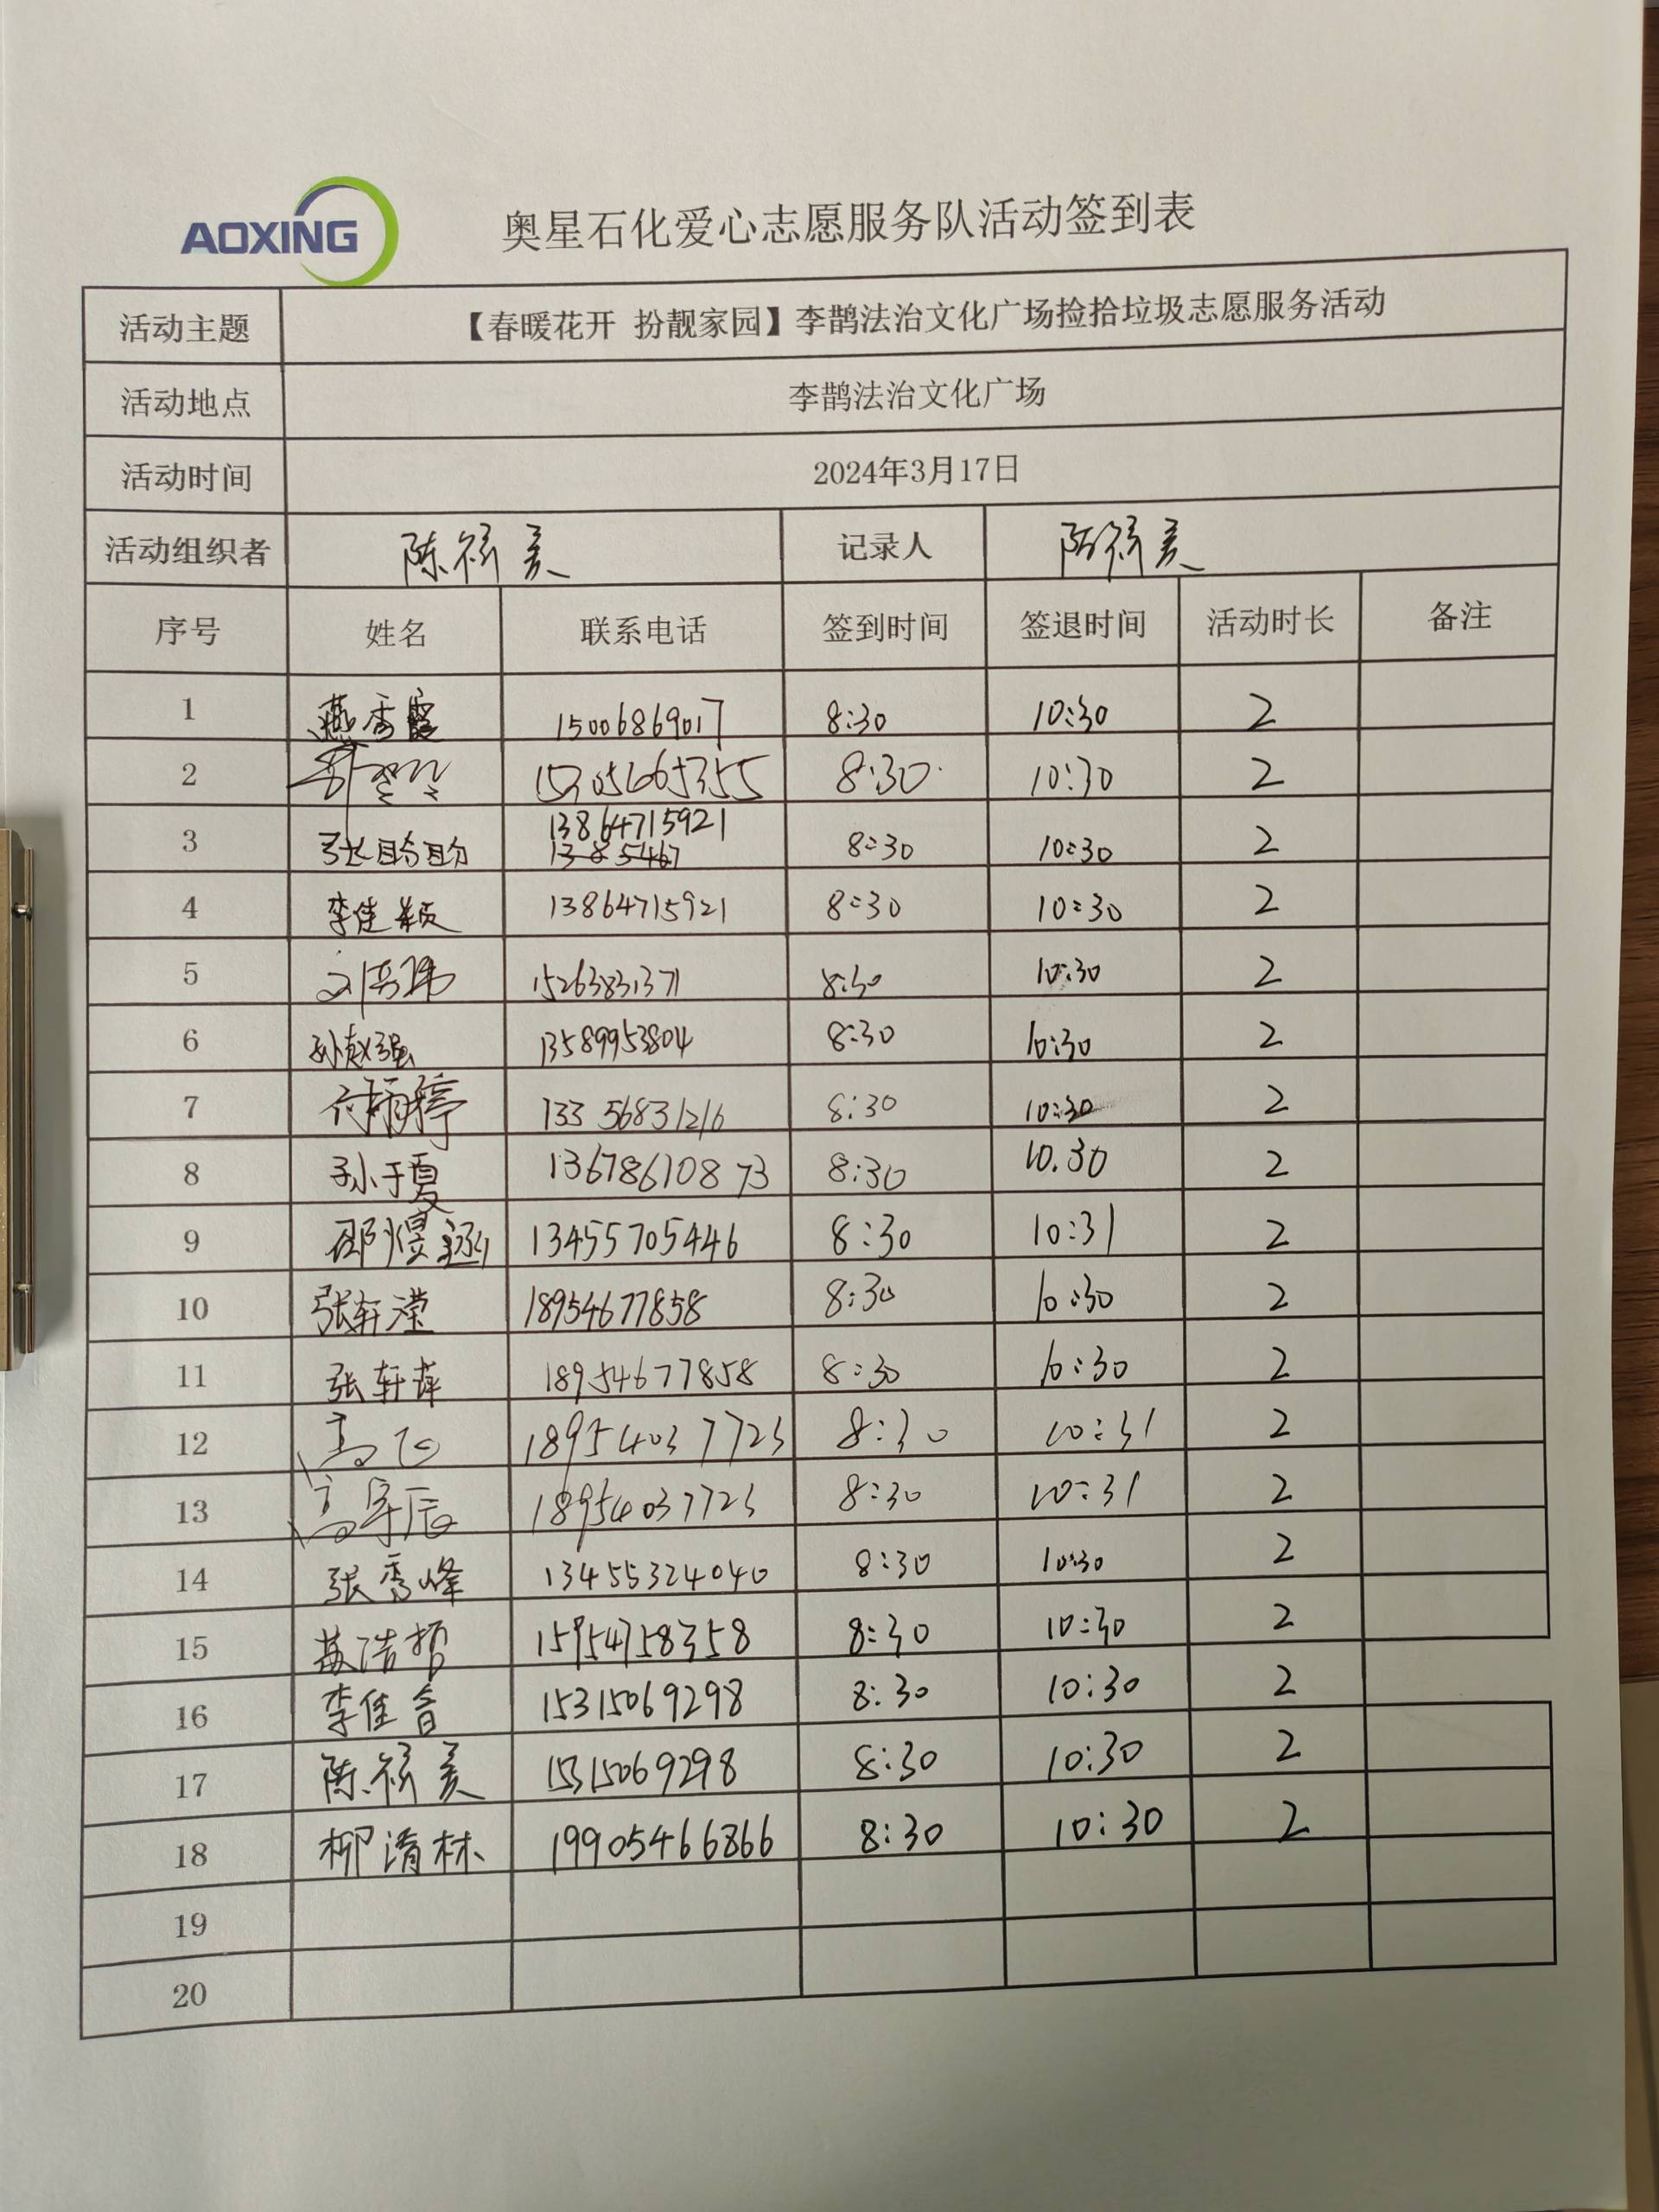 AOXING
奥星石化爱心志愿服务队活动签到表
活动主题 【春暖花开 扮靓家园】李鹊法治文化广场捡拾垃圾志愿服务活动
活动地点 李鹊法治文化广场
活动时间 2024年3月17日
活动组织者 陈 美 记录人 陈 美
序号 姓名 联系电话 签到时间 签退时间 活动时长 备注
1 燕秀霞 15006869017 8:30 10:30 2
2 8:30 10:30 2
3 张盼盼 13864715921 8:30 10:30 2
4 李佳颖 13864715921 8:30 10:30 2
5 15263831371 8:30 10:30 2
6 孙赵强 13589953804 8:30 10:30 2
7 付雨婷 13356831216 8:30 10:30 2
8 孙于夏 13678610873 8:30 10.30 2
9 邵煜涵 13455705446 8:30 10:31 2
10 张轩滢 18954677858 8:30 10:30 2
11 张轩萍 18954677858 8:30 10:30 2
12 高飞 18954037723 8:30 10:31 2
13 高宇辰 18954037723 8:30 10:31 2
14 张秀峰 13455324040 8:30 10:30 2
15 15954758358 8:30 10:30 2
16 李佳音 15315069298 8:30 10:30 2
17 陈 美 15315069298 8:30 10:30 2
18 柳清林 19905466866 8:30 10:30 2
19
20